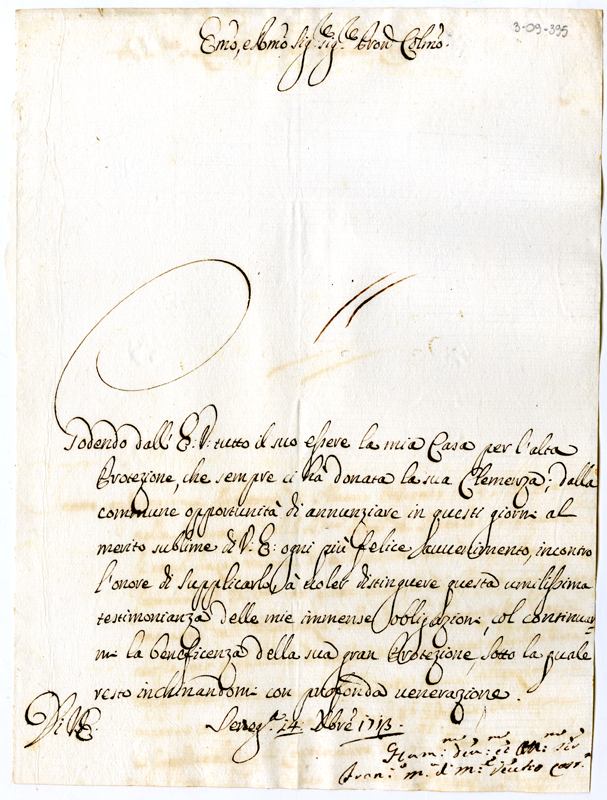 3-09-395
Emo, e Rmo Sig. Sig. Pron Colmo.
Godendo dall' E. V. tutto il suo essere la mia Casa per l'alta
Protezione, che sempre ci hà donata la sua Clemenza; dalla
commune opportunità di annunziare in questi giorni al
merito sublime di V. E: ogni più felice avvenimento, incontro
l'onore di supplicarlo, à voler distinguere questa umilissima
testimonianza delle mie immense obbligazioni, col continuar-
mi la beneficenza della sua gran Protezione, sotto la quale
resto inchinandomi con profonda venerazione.
Di V. E.
Seneg.a 14. Xbre 1713.
Fran.o m.a